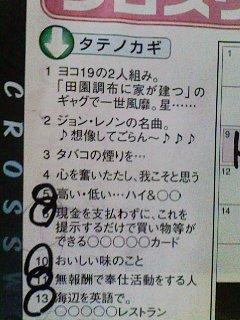 クロス
タテノカギ
1 ヨコ19の2人組み。
「田園調布に家が建つ」の
ギャグで一世風靡。星……
2 ジョン・レノンの名曲。
♪想像してごらん〜♪♪♪
3 タバコの煙りを…
4 心を奮いたたし、我こそと思う
5 高い・低い…ハイ&○○
現金を支払わずに、これを
提示するだけで買い物等が
できる○○○○○カード
10 おいしい味のこと
11 無報酬で奉仕活動をする人
13 海辺を英語で。
○○○○○レストラン
CROSSW
9
1